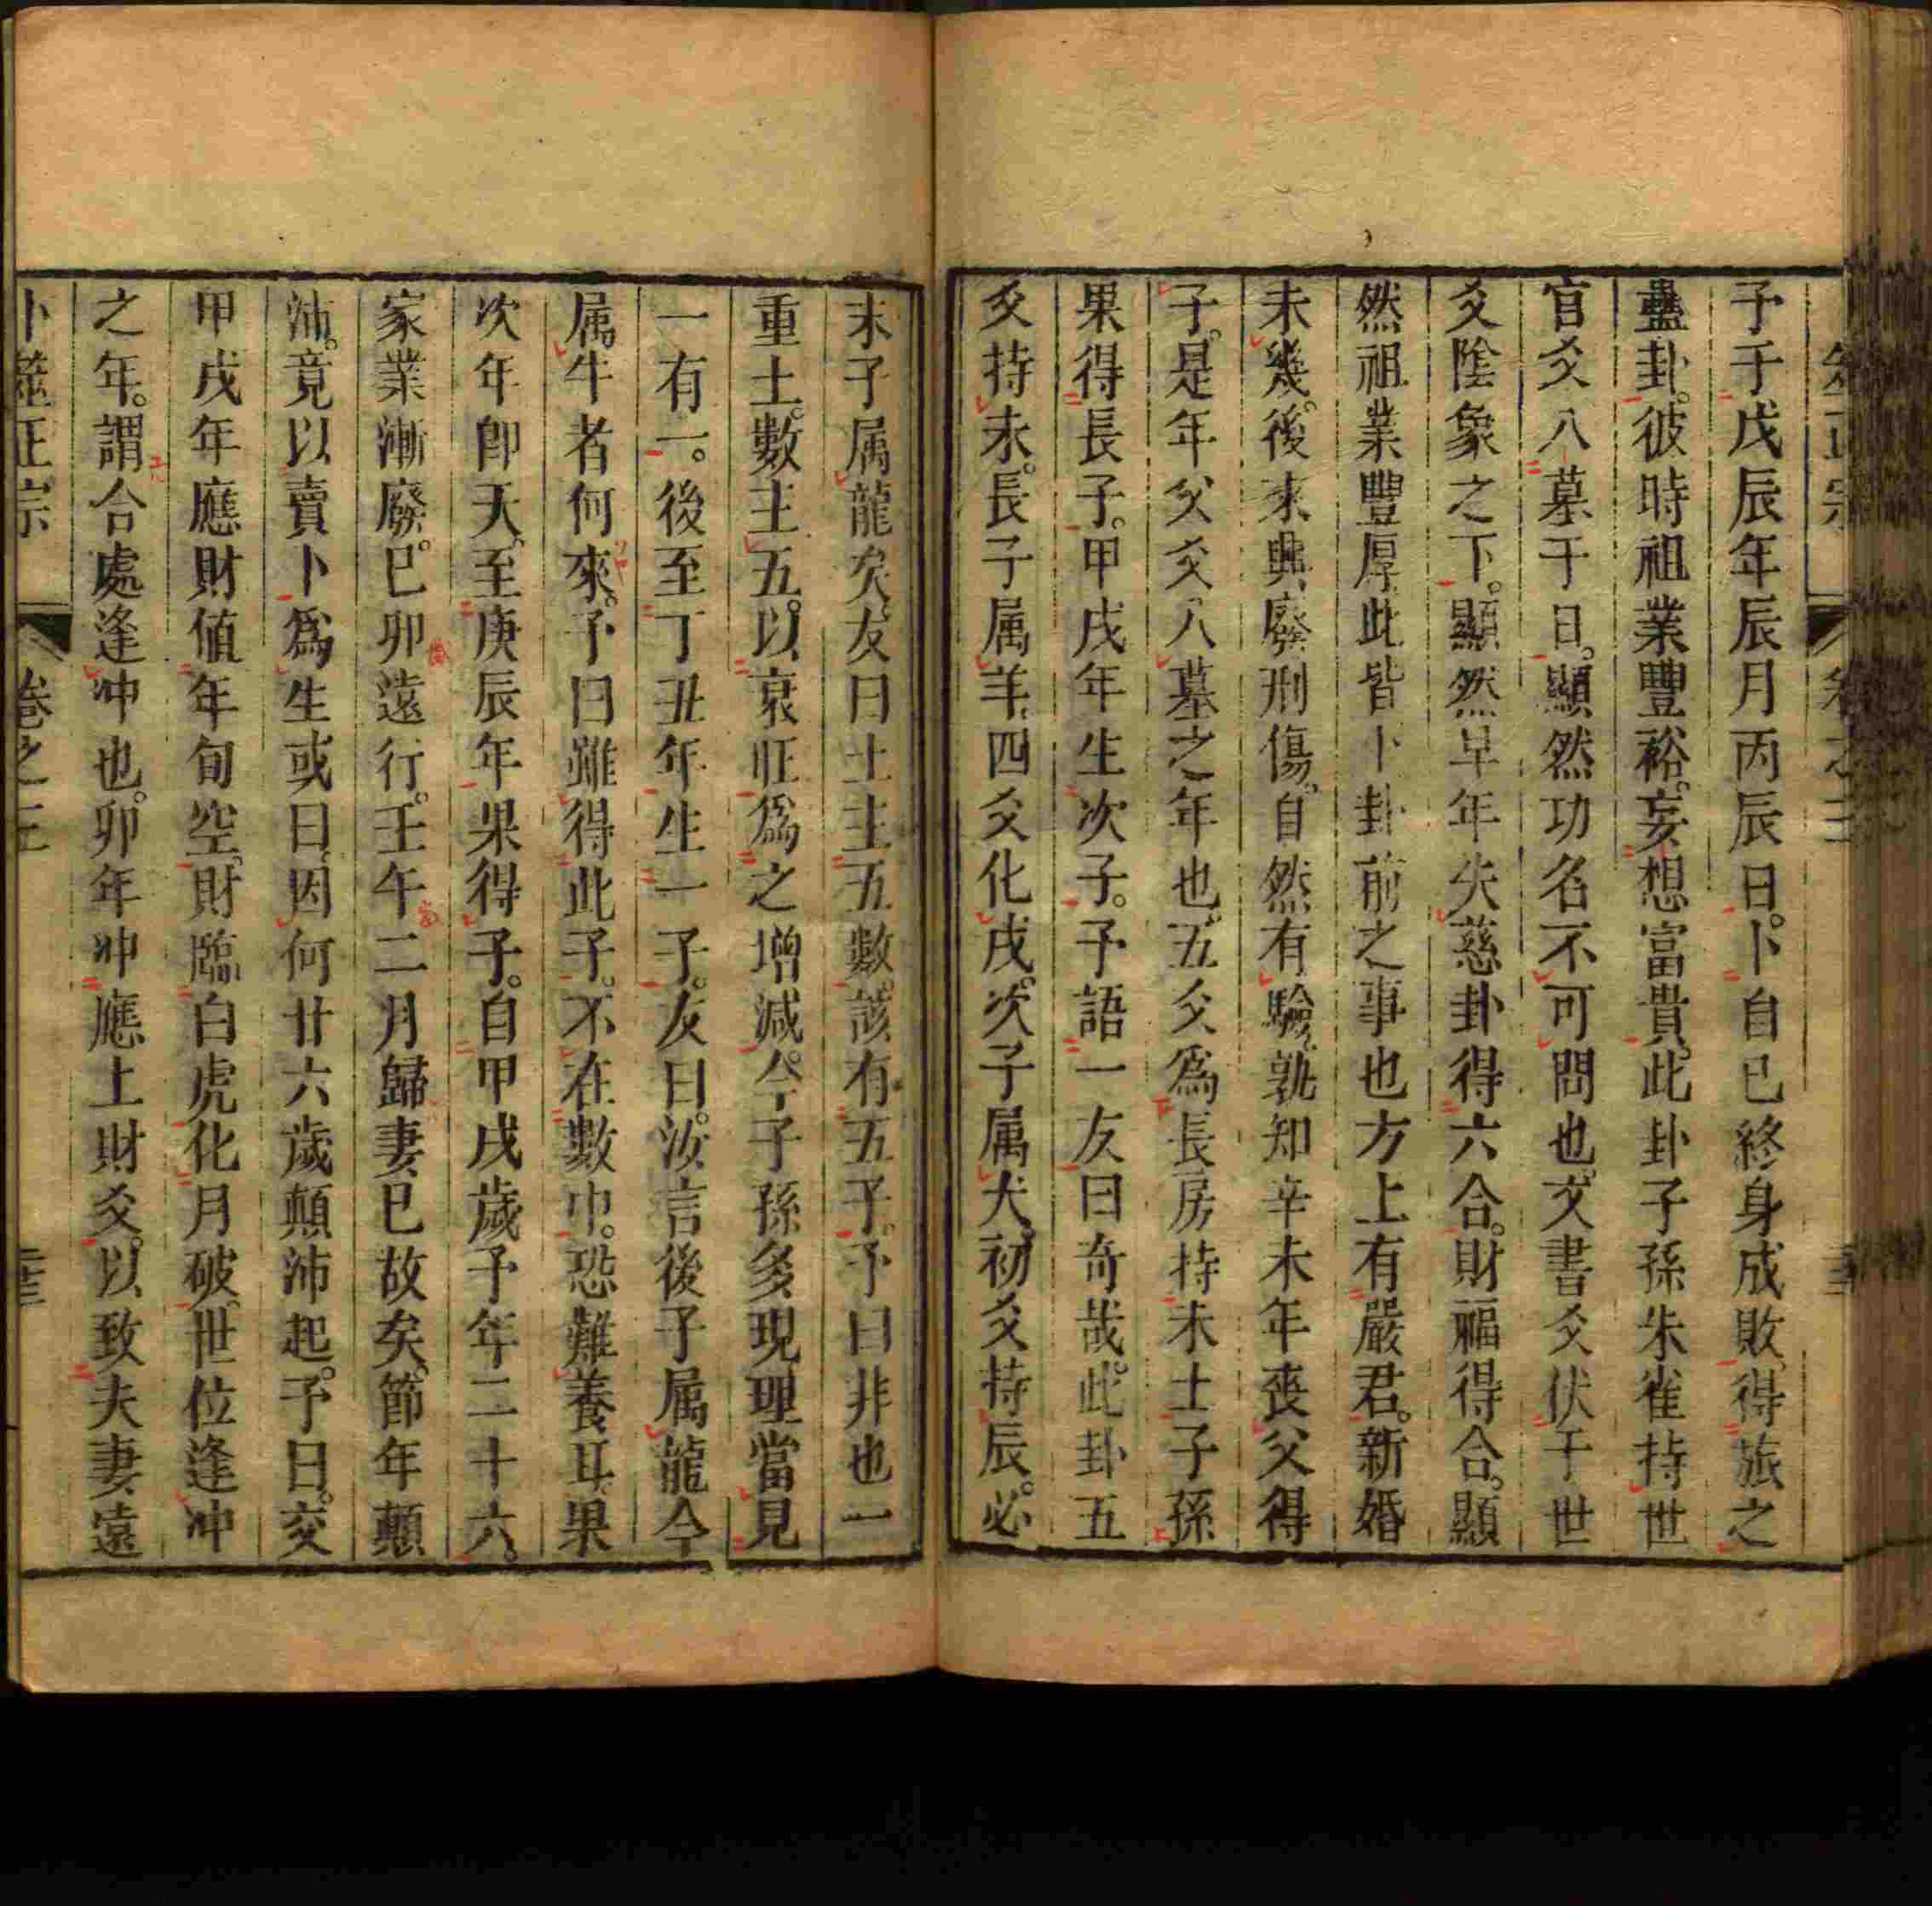 予于戊辰年辰月丙辰日。卜自已終身成敗。得旅之
蠱卦。彼時祖業豐裕。妄想富貴。此卦子孫朱雀持世
官爻入墓于日。顯然功名不可問也。文書爻伏于世
爻陰象之下。顯然早年失慈卦得六合。財福得合。顯
然祖業豐厚此皆卜卦前之事也方上有嚴君。新婚
未幾。後來興廢刑傷。自然有驗。孰知辛未年喪父得
子。是年父爻入墓之年也。五爻爲長房持未土子孫
果得長子。甲戌年生次子。予語一友曰奇哉。此卦五
爻持未。長子属羊。四爻化戌。次子属犬。初爻持辰。必
末子属龍矣。友曰土主五數。該有五子。予曰非也一
重土。數主五。以衰旺爲之增減。今子孫多現理當見
一有一。後至丁丑年生一子。友曰。汝言後子属龍今
属牛者何來。予曰雖得此子。不在數中。恐難養耳。果
次年卽夭。至庚辰年果得子。自甲戌歲予年二十六。
家業漸廢。已卯遠行。壬午二月歸妻已故矣。節年顛
沛。竟以賣卜爲生或曰。因何廿六歲顛沛起。予曰。交
甲戌年應財値年旬空。財臨白虎化月破。世位逢冲
之年。謂合處逢冲也。卯年冲應上財爻。以致夫妻遠
卜筮正宗 卷之三